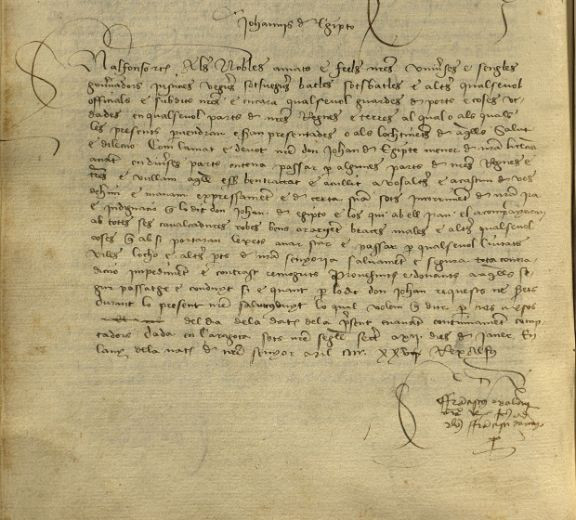 Johannis de Egipto
Nalfonso etc. Als Nobles amats e feels nrēs Universes e sengles
governadors justicies veguers sotsveguers batles sotsbatles e altres qualsevol
officials e subdits nrēs e encara qualsevol guardes de ports e coses ve
dades en qualsevol parts de nrēs Regnes e terres al qual o als quals
les presents pvendran e seran presentades o als lochtinents de aquells Salut
e dileccio Com lamat e devot nrē don Johan de Egipte menor de nrā licencia
anant en diverses parts entena passar p algunes parts de nrēs Regnes e
trēs e vullam aquell esser ben tractat e acullit a vosaltres e a cascun de vos
dehim e manam expressament e de certa sciencia sots incorriment de nrā ira
e indignacio q lo dit don Johan de Egipto e los qui ab ell iran el acompanyaran
ab totes ses cavalcadures robes bens or argent males e altres qualsevol
coses q ab si portaran lexets anar star e passar p qualsevol Ciutats
viles lochs e altres pts de nrā senyoria salvament e segura tota contra
diccio impediment e contrast remoguts Provehints e donants a aquells se
gur passatge e conduyt si e quant p lo dit don Johan request ne sereu
durant lo present nrē salvconduyt lo qual volem q dur p tres meses
del dia dela data dela pnt enant continuament comp
tadors Dada en Saragoça sots nrē segell secret a xii dies de Janer En
lany dela nat de nrē senyor Mil CCCC XXV Rex Alfonsus